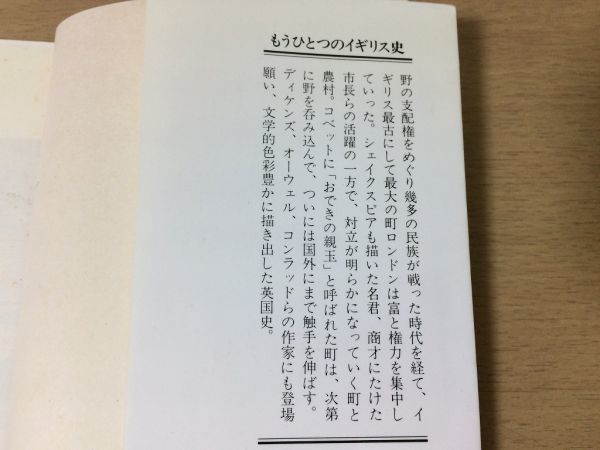 もうひとつのイギリス史
野の支配権をめぐり幾多の民族が戦った時代を経て、イ
ギリス最古にして最大の町ロンドンは富と権力を集中し
ていった。シェイクスピアも描いた名君、商才にたけた
市長らの活躍の一方で、対立が明らかになっていく町と
農村。コベットに「おできの親玉」と呼ばれた町は、次第
に野を呑み込んで、ついには国外にまで触手を伸ばす。
ディケンズ、オーウェル、コンラッドらの作家にも登場
願い、文学的色彩豊かに描き出した英国史。